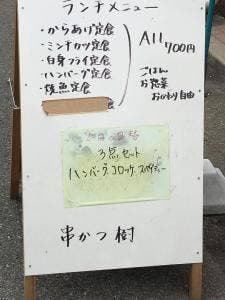 ランチメニュー
・からあげ定食
・ミンチカツ定食
・白身フライ定食
・ハンバーグ定食
・焼魚定食
All 700円
ごはん
お惣菜
おかわり自由
3点セット
ハンバーグ、コロッケ、スパゲティー
串かつ 樹